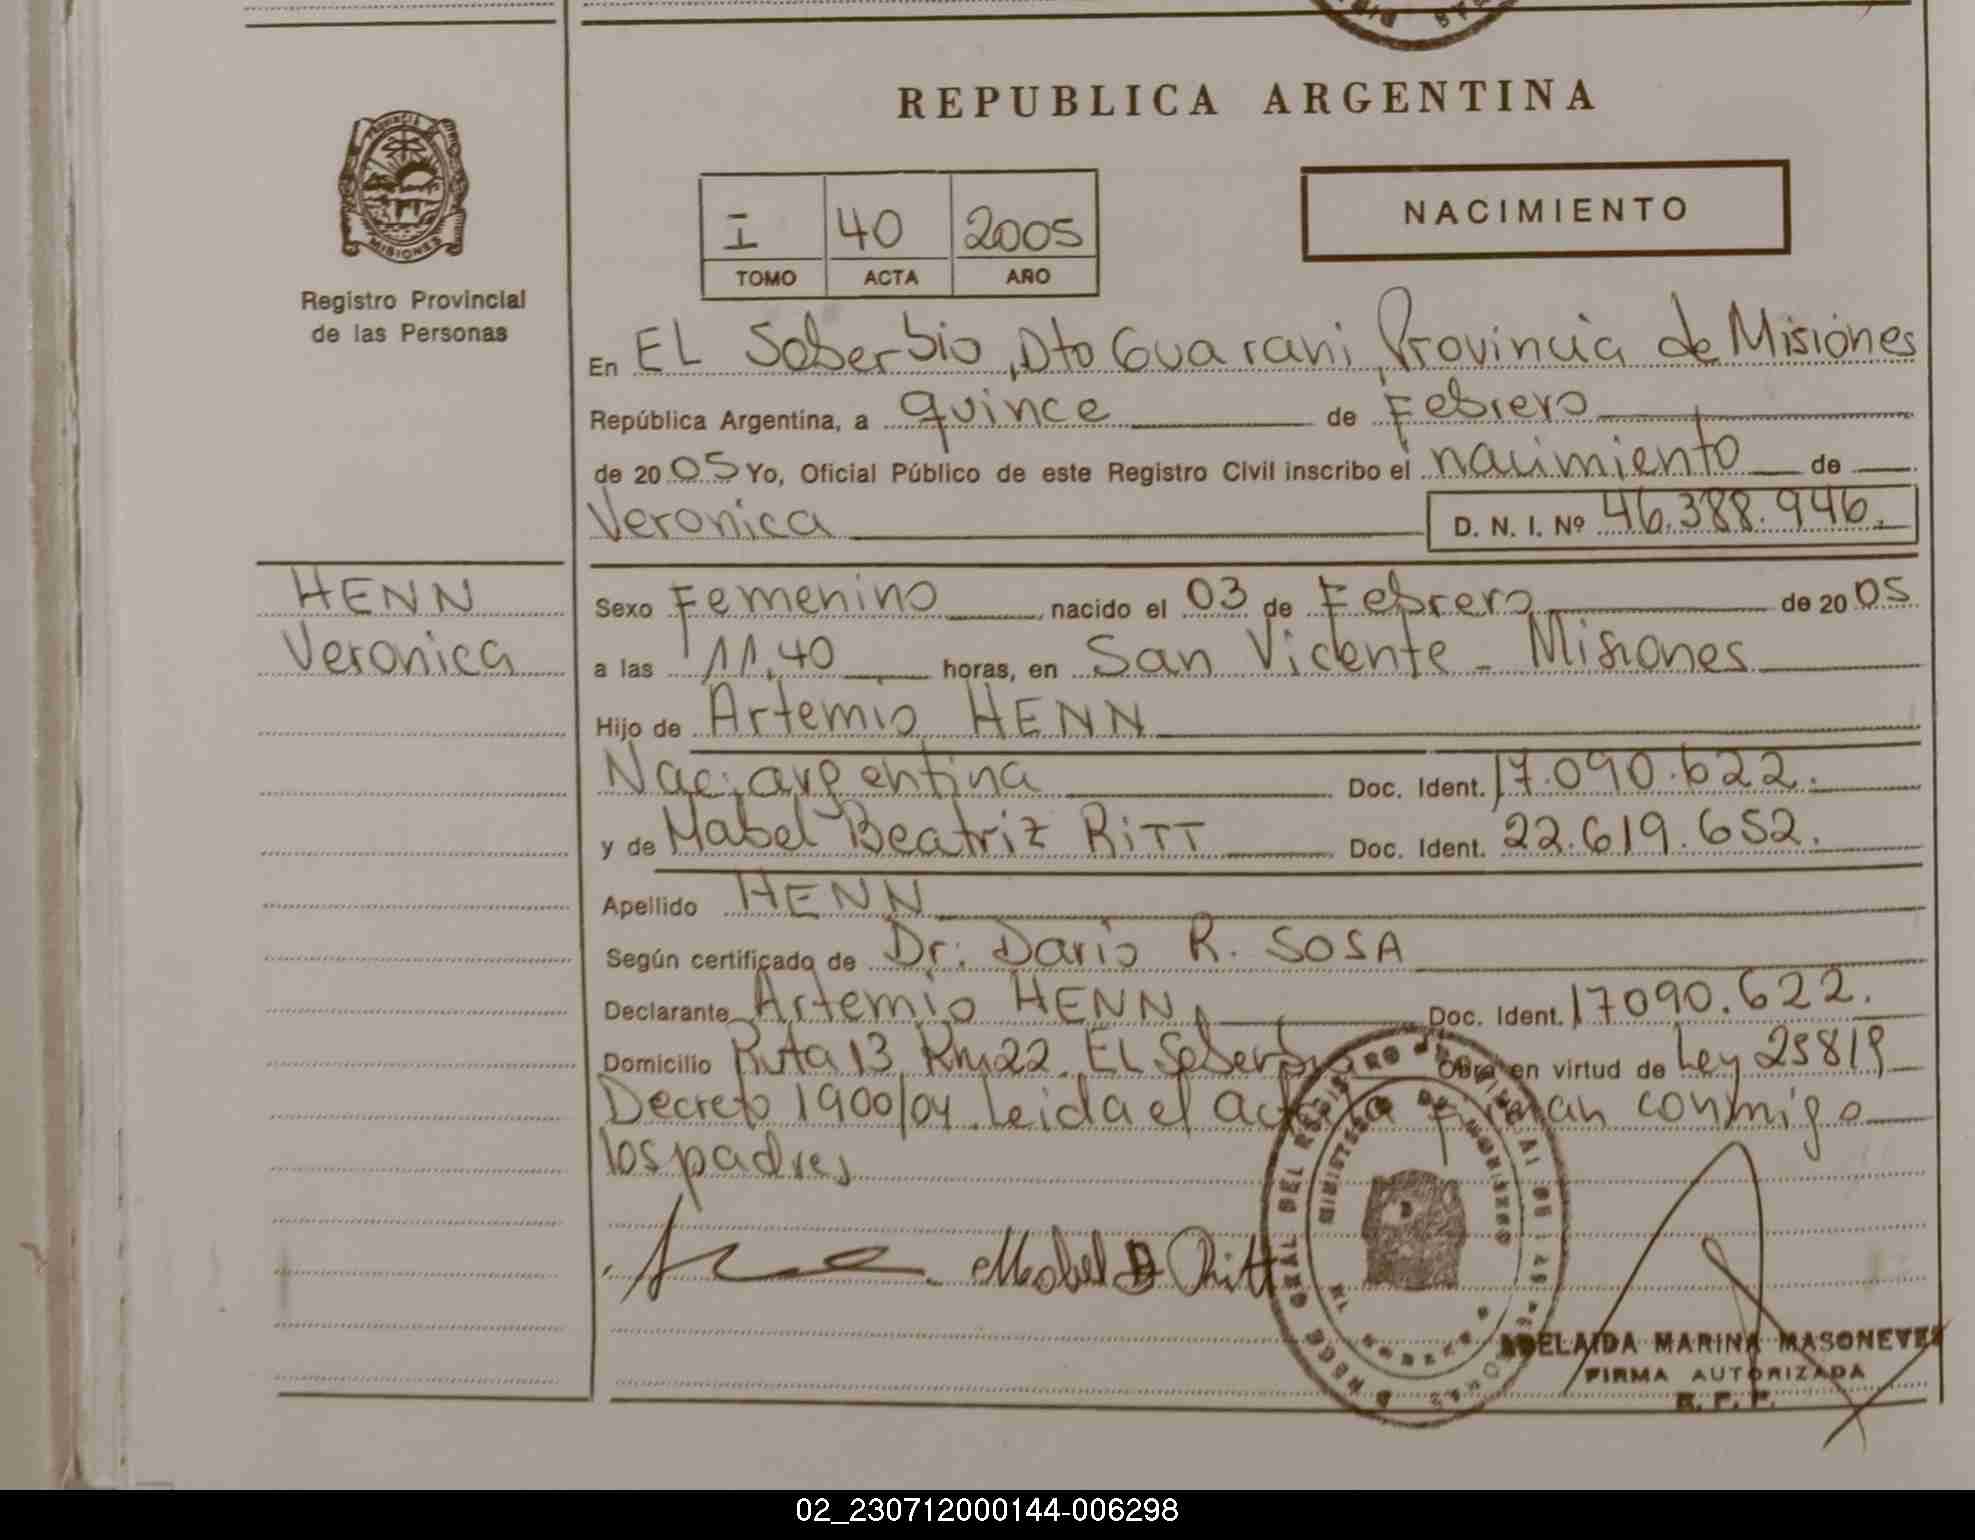 REPUBLICA ARGENTINA
PROVINCIA DE
MISIONES
Registro Provincial
de las Personas
I 40 2005
TOMO ACTA AÑO
NACIMIENTO
En EL Soberbio, Dto Guarani, Provincia de Misiones
República Argentina, a quince de Febrero
de 20 05 Yo, Oficial Público de este Registro Civil inscribo el nacimiento de
Veronica D. N. I. Nº 46.388.946.
HENN
Veronica
Sexo Femenino nacido el 03 de Febrero de 20 05
a las 11,40 horas, en San Vicente - Misiones
Hijo de Artemio HENN
Nac. argentina Doc. Ident. 17.090.622.
y de Mabel Beatriz RiTT Doc. Ident. 22.619.652.
Apellido HENN
Según certificado de Dr: Dario R. SOSA
Declarante Artemio HENN Doc. Ident. 17090.622.
Domicilio Ruta 13 Km 22. EL Soberbio Obra en virtud de Ley 25819
Decreto 1900/04. Leida el acta la firman conmigo
los padres
Mabel B Ritt
ADELAIDA MARINA
FIRMA AUTORIZADA
02_230712000144-006298